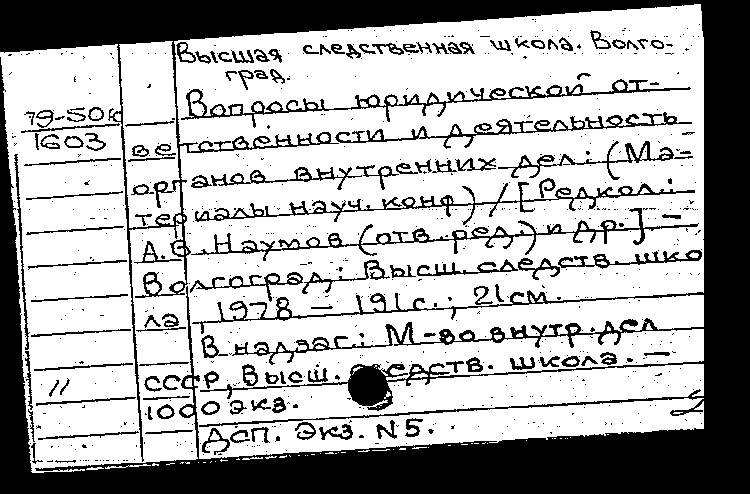 Высшая следственная школа. Волго-
град.
79-50к Вопросы юридической от-
1603 ветственности и деятельность
органов внутренних дел: (Ма-
териалы науч. конф) / [Редкол.:
А.В. Наумов (отв. ред.) и др.] –
Волгоград: Высш. следств. шко
ла, 1978. – 191с.; 21см.
В надзаг.: М-во внутр. дел
// СССР, Высш. следств. школа. –
1000 экз.
Дсп. Экз. N5.